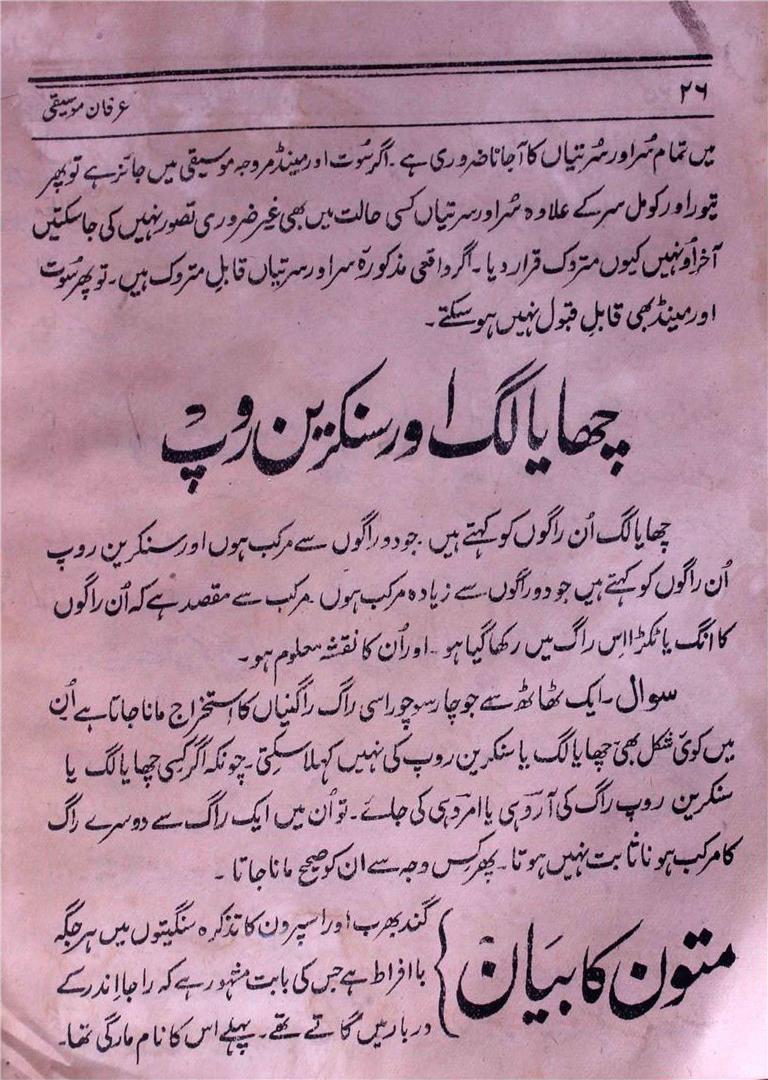 ۲۶
عرفان موسیقی
میں تمام سُر اور سُرتیاں کا آجانا ضروری ہے۔ اگر سُوت اور مینڈ مروجہ موسیقی میں جائز ہے تو پھر
تیور اور کومل سر کے علاوہ سُر اور سرتیاں کسی حالت میں بھی غیر ضروری تصور نہیں کی جاسکتیں
آخر اُونہیں کیوں متروک قرار دیا۔ اگر واقعی مذکورہ سر اور سرتیاں قابلِ متروک ہیں۔ تو پھر سُوت
اور مینڈ بھی قابلِ قبول نہیں ہوسکتے۔
چھایالگ اور سنکرین روپ
چھایالگ اُن راگوں کو کہتے ہیں۔ جو دو راگوں سے مرکب ہوں اور سنکرین روپ
اُن راگوں کو کہتے ہیں جو دو راگوں سے زیادہ مرکب ہوں۔ مرکب سے مقصد ہے کہ اُن راگوں
کا انگ یا ٹکڑا اس راگ میں رکھا گیا ہو۔ اور اُن کا نقشہ معلوم ہو۔
سوال۔ ایک ٹھاٹھ سے جو چار سو چوراسی راگ راگنیاں کا استخراج مانا جاتا ہے اُن
میں کوئی شکل بھی چھایالگ یا سنکرین روپ کی نہیں کہلا سکتی۔ چونکہ اگر کسی چھایالگ یا
سنکرین روپ راگ کی آروہی یا امروہی کی جائے۔ تو اُن میں ایک راگ سے دوسرے راگ
کا مرکب ہونا ثابت نہیں ہوتا۔ پھر کس وجہ سے ان کو صحیح مانا جاتا۔
متون کا بیان
گندھرب اور اسپرون کا تذکرہ سنگیتوں میں ہر جگہ
باافراط ہے جس کی بابت مشہور ہے کہ راجا اندر کے
دربار میں گاتے تھے۔ پہلے اس کا نام مارگی تھا۔